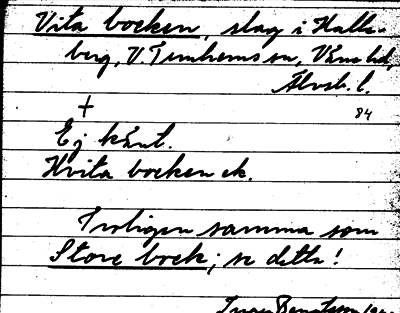 Vita bocken, slag i Halle-
berg, V. Tunhems sn, Väne hd,
Älvsb. l.
84
Ej känt.
Hvita bocken ek.
Troligen samma som
Store bock; se detta!